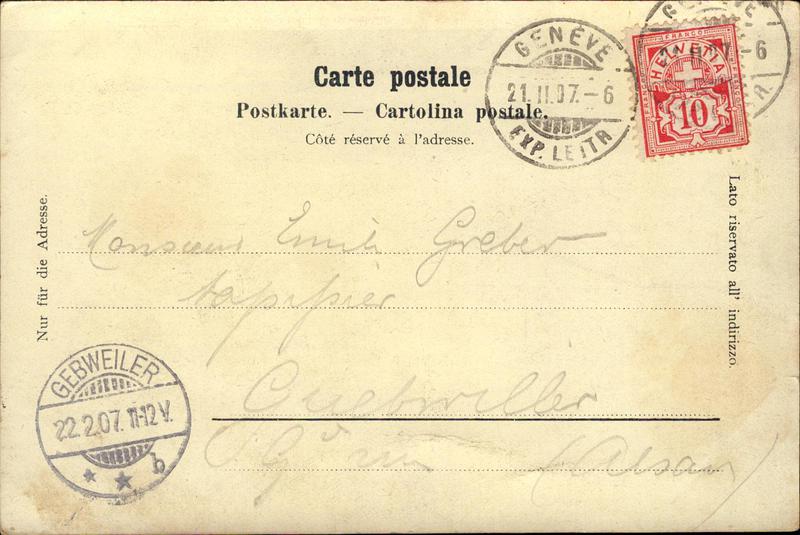 Carte postale
Postkarte. — Cartolina postale.
Côté réservé à l'adresse.
GENÈVE
21.II.07.–6
EXP. LETTR
GENÈVE
–6
FRANCO
HELVETIA
10
Nur für die Adresse.
Lato riservato all' indirizzo.
Monsieur Emile Greber
tapissier
Guebwiller
Alsace
GEBWEILER
22.2.07. 11-12 V.
b